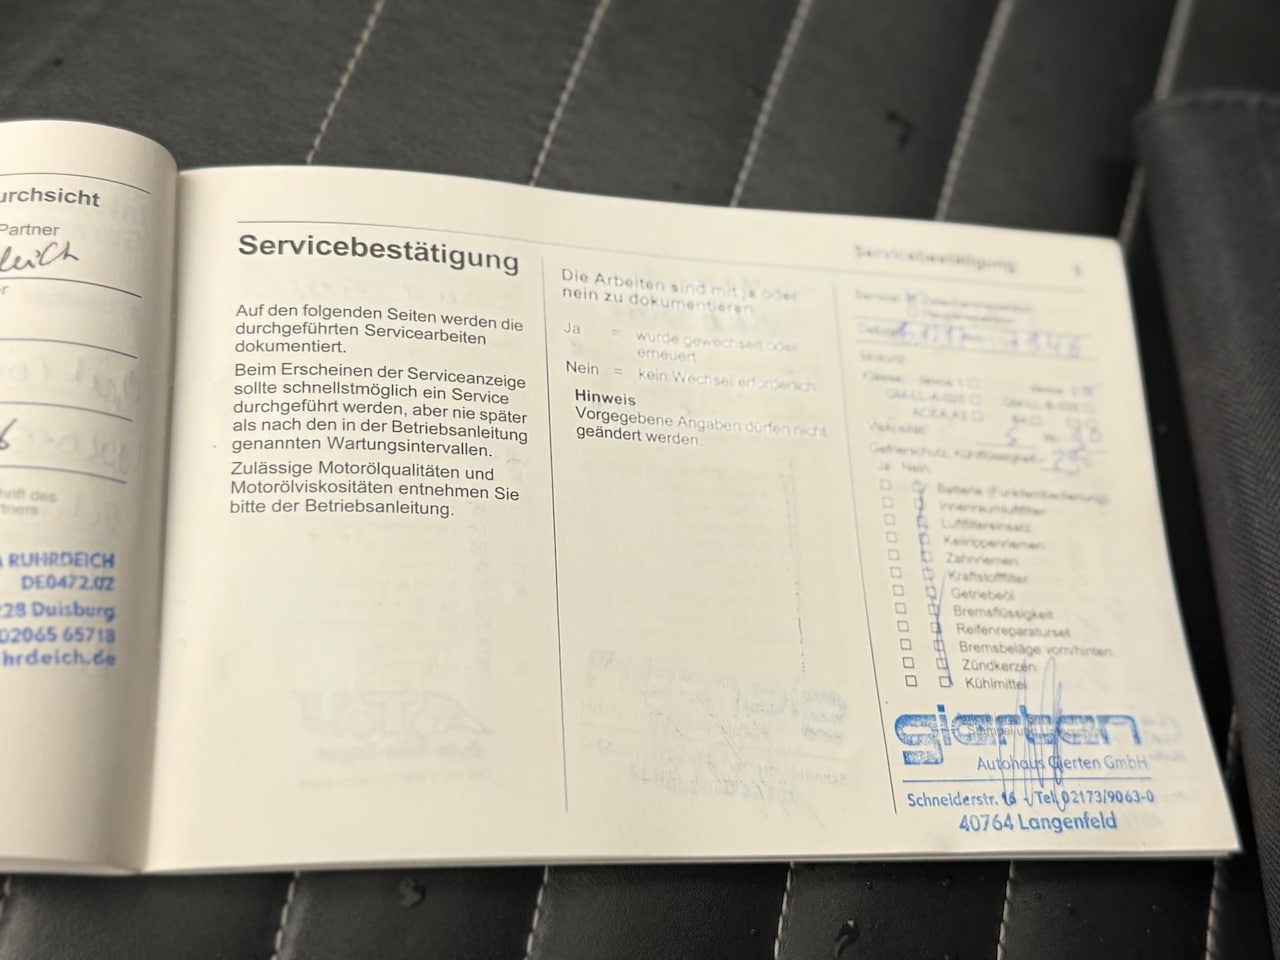 urchsicht
Partner
RUHRDEICH
DE0472.02
228 Duisburg
02065 65713
hrdeich.de
Servicebestätigung
Auf den folgenden Seiten werden die
durchgeführten Servicearbeiten
dokumentiert.
Beim Erscheinen der Serviceanzeige
sollte schnellstmöglich ein Service
durchgeführt werden, aber nie später
als nach den in der Betriebsanleitung
genannten Wartungsintervallen.
Zulässige Motorölqualitäten und
Motorölviskositäten entnehmen Sie
bitte der Betriebsanleitung.
Die Arbeiten sind mit ja oder
nein zu dokumentieren.
Ja = wurde gewechselt oder
erneuert
Nein = kein Wechsel erforderlich
Hinweis
Vorgegebene Angaben dürfen nicht
geändert werden.
Servicebestätigung
Ja Nein
Batterie (Funkfernbedienung)
Innenraumluftfilter
Luftfiltereinsatz
Keilrippenriemen
Zahnriemen
Kraftstofffilter
Getriebeöl
Bremsflüssigkeit
Reifenreparaturset
Bremsbeläge vorn/hinten
Zündkerzen
Kühlmittel
Autohaus Gierten GmbH
Schneiderstr. 16 - Tel. 02173/9063-0
40764 Langenfeld